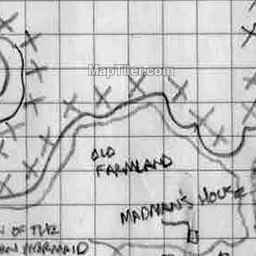 MapTiler.com
OLD
FARMLAND
MADMAN'S HOUSE
OF THE
MERMAID